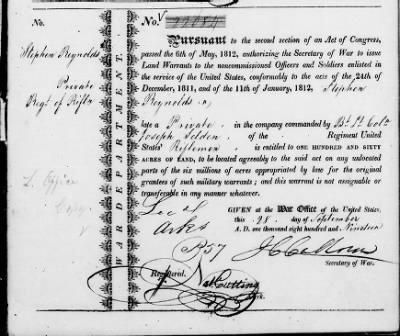 No.
No.
Stephen Reynolds
Private
Regt. of Rifle
L. Office
Copy
WAR DEPARTMENT.
Pursuant to the second section of an Act of Congress,
passed the 6th of May, 1812, authorizing the Secretary of War to issue
Land Warrants to the noncommissioned Officers and Soldiers enlisted
in the service of the United States, conformably to the acts of the 24th of
December, 1811, and of the 11th of January, 1812, Stephen
Reynolds
late a Private in the company commanded by Bt. Lt. Colo.
Joseph Selden of the Regiment United
States' Riflemen is entitled to ONE HUNDRED AND SIXTY
ACRES OF LAND, to be located agreeably to the said act on any unlocated
parts of the six millions of acres appropriated by law for the original
grantees of such military warrants; and this warrant is not assignable or
transferable in any manner whatever.
GIVEN at the War Office of the United States,
this 28 day of September
A. D. one thousand eight hundred and Nineteen
Arks
P 57
J C Calhoun
Secretary of War.
Registered.
Nat Cutting
Clerk.